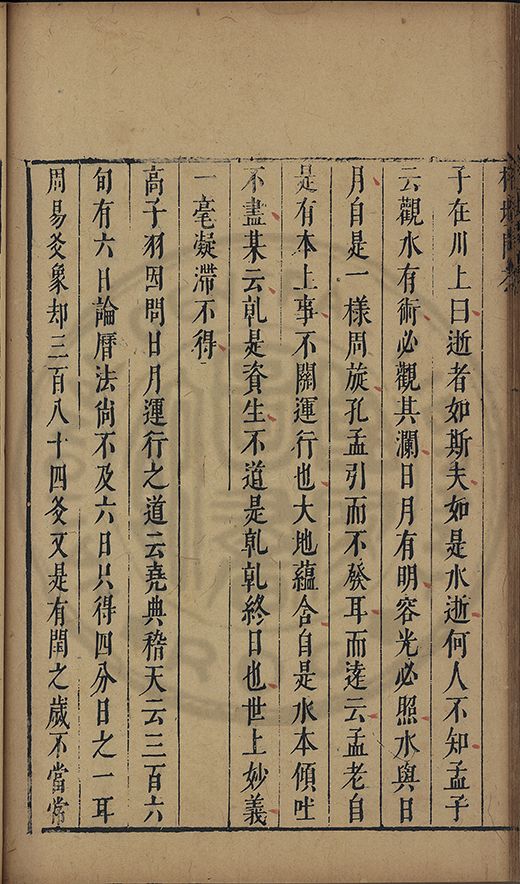 子在川上曰逝者如斯夫如是水逝何人不知孟子
云觀水有術必觀其瀾日月有明容光必照水與日
月自是一樣周旋孔孟引而不發耳而遠云孟老自
是有本上事不關運行也大地蘊含自是水本傾吐
不盡某云乹是資生不道是乹乹終日也世上妙義
一毫凝滯不得
高子羽因問日月運行之道云堯典稽天云三百六
旬有六日論曆法尙不及六日只得四分日之一耳
周易爻象却三百八十四爻又是有閏之歲不當常